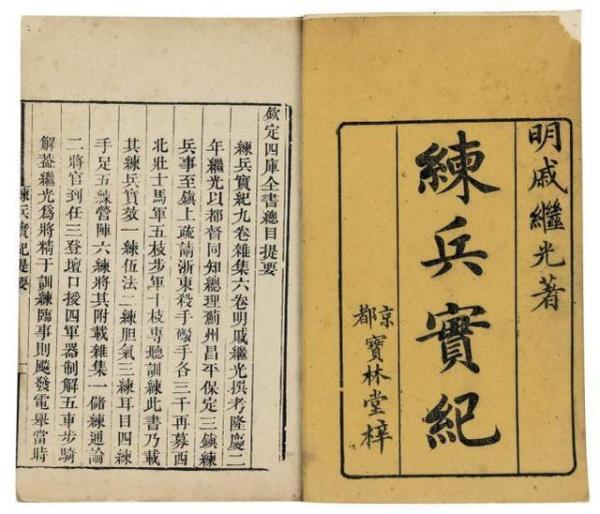 明戚繼光著
練兵實紀
京都寶林堂梓
欽定四庫全書總目提要
練兵實紀九卷雜集六卷明戚繼光撰考隆慶二
年繼光以都督同知總理薊州昌平保定三鎮練
兵事至鎮上疏請浙東殺手礮手各三千再募西
北壯士馬軍五枝步軍十枝専聽訓練此書乃載
其練兵實效一練伍法二練胆氣三練耳目四練
手足五練營陣六練將其附載雜集一儲練通論
二將官到任三登壇口授四軍器制解五車步騎
解葢繼光爲將精于訓練臨事則飈發電舉當時
練兵實紀提要